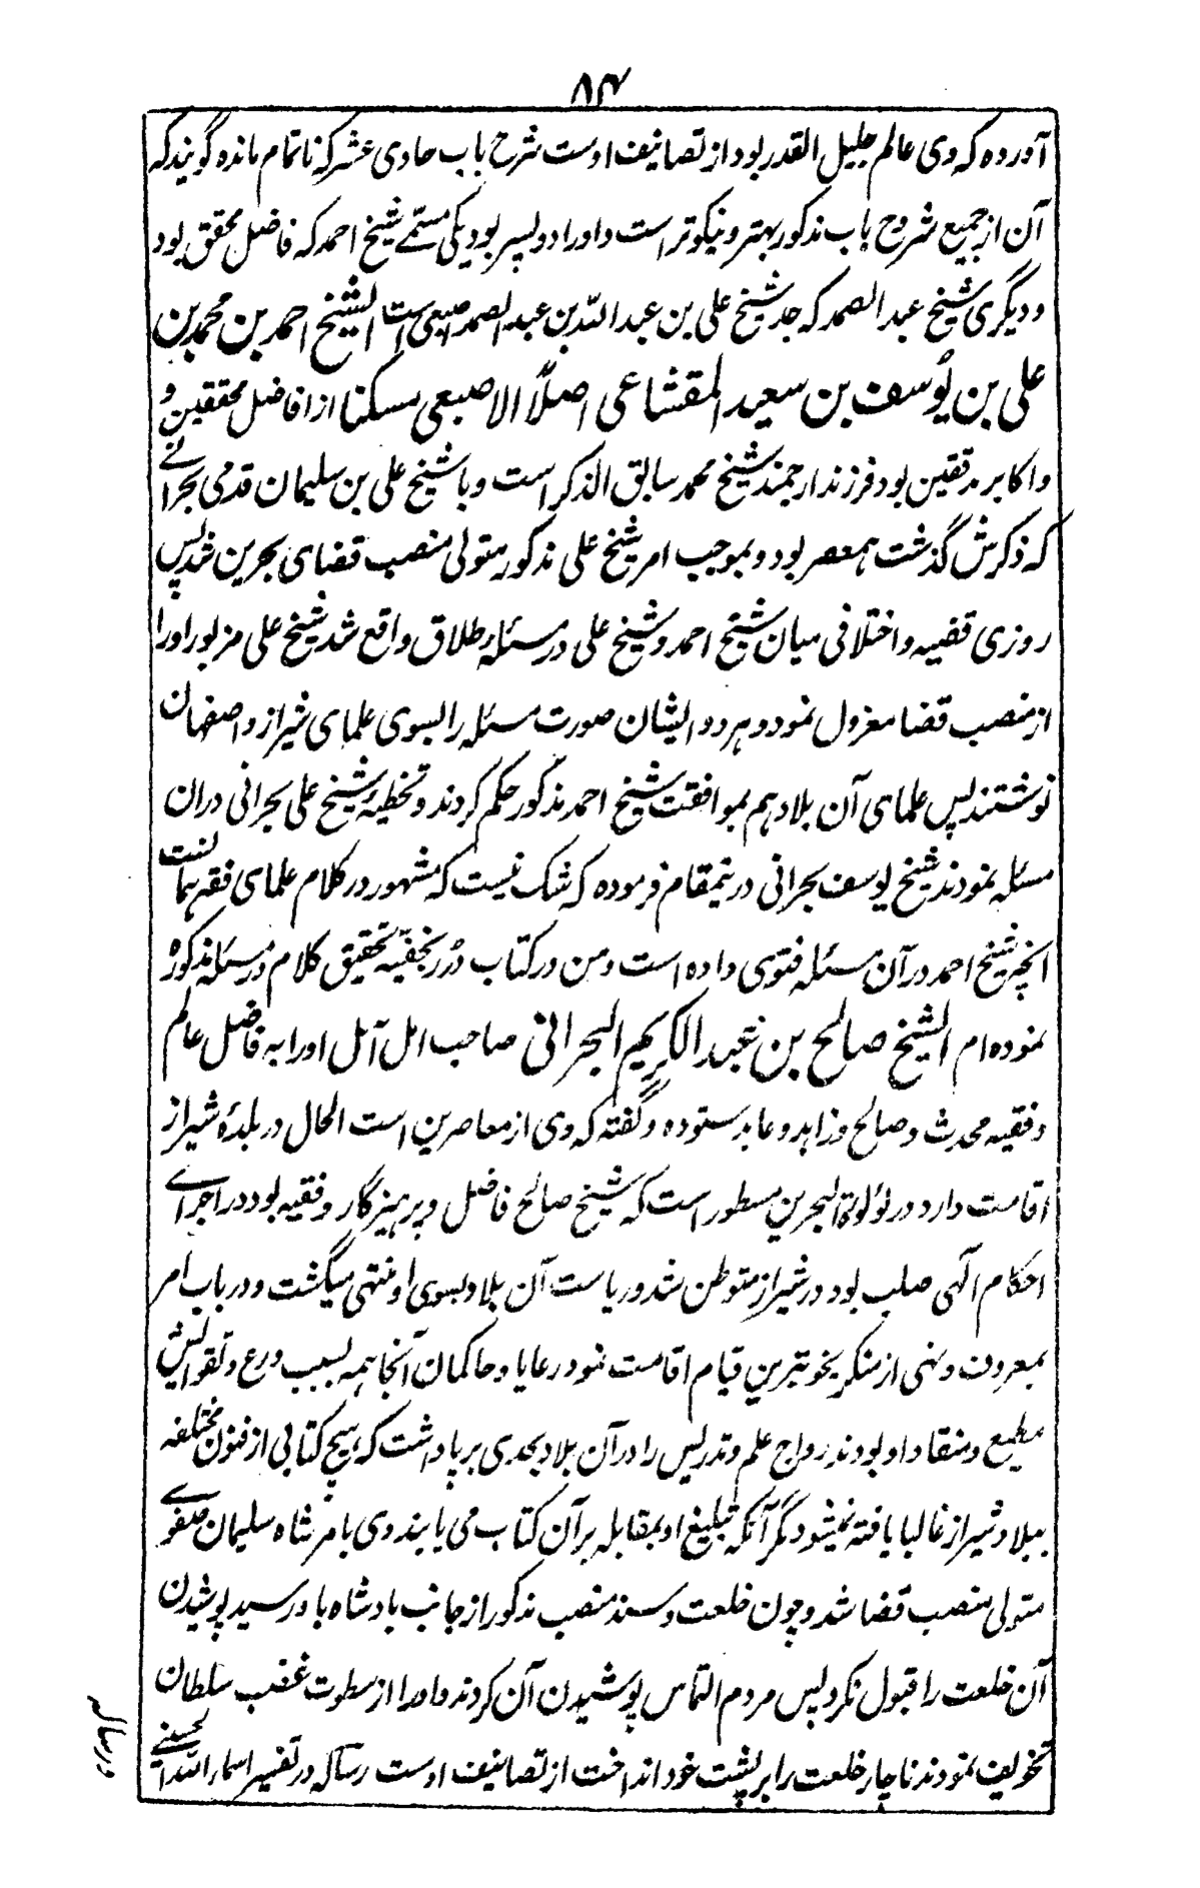 ۸۴
آورده که وی عالم جلیل القدر بود از تصانیف اوست شرح باب حادی عشر که ناتمام مانده گویند که
آن از جمیع شروح باب مذکور بهتر و نیکوتر است و او را دو پسر بود یکی مسمے شیخ احمد که فاضل محقق بود
و دیگری شیخ عبد الصمد که جد شیخ علی بن عبد اللّه بن عبد الصمد اصبعی است الشیخ احمد بن محمد بن
علی بن یُوسف بن سعید المقشاعی اصلًا الاصبعی مسکنا از افاضل محققین و
و اکابر مدققین بود فرزند ارجمند شیخ محمد سابق الذکر است و با شیخ علی بن سلیمان قدمی بحرانے
که ذکرش گذشت همعصر بود و بموجب امر شیخ علی مذکور متولی منصب قضای بحرین شد پس
روزی قضیه و اختلافی میان شیخ احمد و شیخ علی در مسئله طلاق واقع شد شیخ علی مزبور او را
از منصب قضا معزول نمود و هر دو ایشان صورت مسئله را بسوی علمای شیراز و اصفهان
نوشتند پس علمای آن بلاد هم بموافقت شیخ احمد مذکور حکم کردند و تخطیهٔ شیخ علی بحرانی دران
مسئله نمودند شیخ یوسف بحرانی درینمقام فرموده که شک نیست که مشهور در کلام علمای فقه همانست
انچه شیخ احمد در آن مسئله فتوی داده است و من در کتاب دُرر نجفیّه تحقیق کلام در مسئله مذکوره
نموده ام الشیخ صالح بن عبد الکریم البحرانی صاحب امل آمل او را به فاضل عالم
و فقیه محدث و صالح و زاهد و عابد ستوده و گفته که وی از معاصرین است الحال در بلدهٔ شیراز
اقامت دارد در لؤلؤة البحرین مسطور است که شیخ صالح فاضل و پرهیزگار و فقیه بود در اجرائے
احکام الٓهی صلب بود در شیراز متوطن شد و ریاست آن بلاد بسوی او منتهی میگشت و در باب امر
بمعروف و نهی از منکر بخوبترین قیام اقامت نمود رعایا و حاکمان آنجا همه بسبب ورع و تقوایش
مطیع و منقاد او بودند رواج علم و تدریس را در آن بلاد بحدی برپا داشت که هیچ کتابی از فنون مختلفه
ببلاد شیراز غالبا یافته نمیشود مگر آنکه تبلیغ او بمقابله بر آن کتاب می یابند وی بامر شاه سلیمان صفوے
متولی منصب قضا شد و چون خلعت و سند منصب مذکور از جانب بادشاه باو رسید پوشیدن
آن خلعت را قبول نکرد پس مردم التماس پوشیدن آن کردند و او را از سطوت غضب سلطان
تخویف نمودند ناچار خلعت را بر پشت خود انداخت از تصانیف اوست رساله در تفسیر اسماء اللّه الحسنے
و رساله